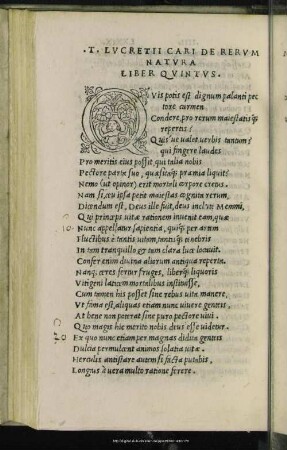 .T. LVCRETII CARI DE RERVM
NATVRA
LIBER QVINTVS.
QVis potis est dignum pollenti pec
tore carmen
Condere, pro rerum maiestatis iisq́;
repertis?
Quis ue ualet uerbis tantum,
qui fingere laudes
Pro meritis eius possit, qui talia nobis
Pectore parta suo, quæsitaq́; præmia liquit?
Nemo (ut opinor) erit mortali corpore cretus.
Nam si, ceu ipsa petit maiestas cognita rerum,
Dicendum est, Deus ille fuit, deus inclyte Memmi,
Qui princeps uitæ rationem inuenit eam, quæ
Nunc appellatur sapientia, quiq́; per artem
Fluctibus è tantis uitam, tantisq́; tenebris
In tam tranquillo, & tam clara luce locauit.
Confer enim diuina aliorum antiqua reperta.
Nanq; Ceres fertur fruges, liberq́; liquoris
Vitigeni laticem mortalibus instituisse,
Cum tamen his posset sine rebus uita manere,
Vt fama est, aliquas etiam nunc uiuere gentis,
At bene non poterat sine puro pectore uiui.
Quo magis hic merito nobis deus esse uidetur.
Ex quo nunc etiam per magnas didita gentis
Dulcia permulcent animos solatia uitæ.
Herculis antistare autem si facta putabis,
Longius à uera multo ratione ferere.